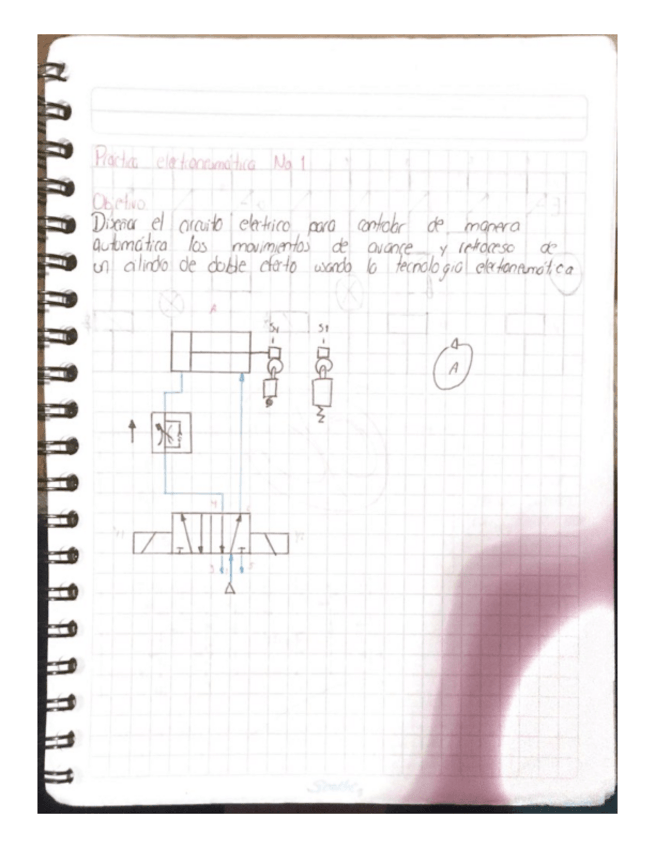 Práctica electroneumática No 1
Objetivo
Diseñar el circuito electrico para controlar de manera
automática los movimientos de avance y retroceso de
un cilindo de doble efecto usando la tecnología electroneumática
A
S1 S1
A
4